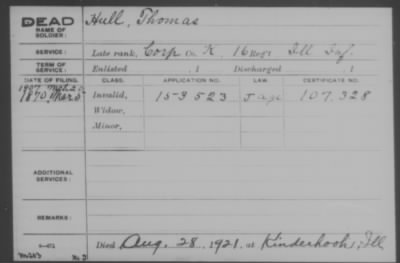 DEAD
NAME OF SOLDIER:
Hull, Thomas
SERVICE:
Late rank, Corp Co. K, 16 Reg't Ill Inf.
TERM OF SERVICE:
Enlisted , 1 Discharged , 1
DATE OF FILING. CLASS. APPLICATION NO. LAW. CERTIFICATE NO.
1907
1870, Invalid, 153523 107,328
Widow,
Minor,
ADDITIONAL SERVICES:
REMARKS:
Died Aug. 28, 1921, at Kinderhook, Ill